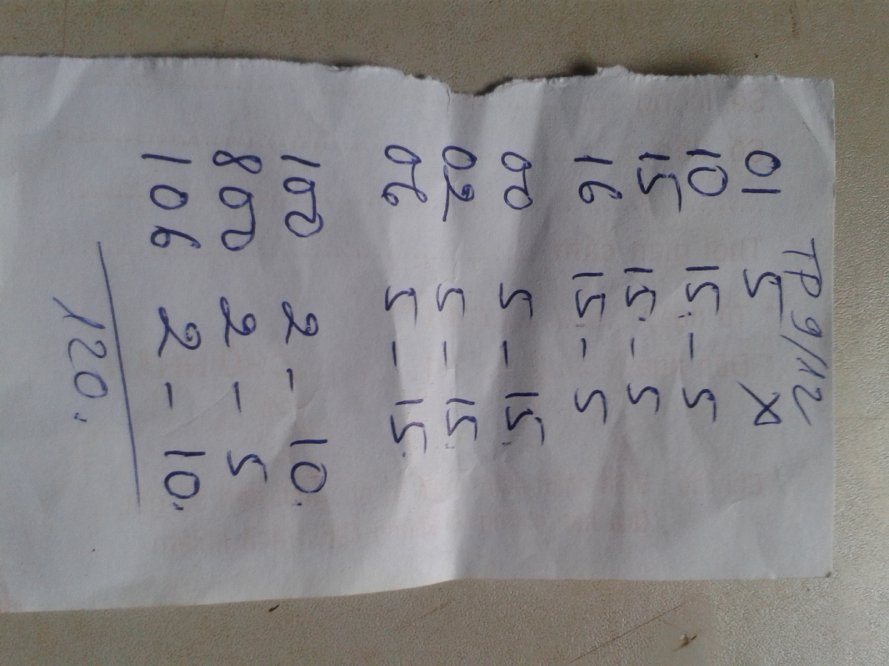 TP 9/12
01 5 x
10 15. - 5
15 15. - 5
16 15. - 5
00 5 - 15.
02 5 - 15.
06 5 - 15.
100 2 - 10.
800 2 - 5
106 2 - 10.
120.